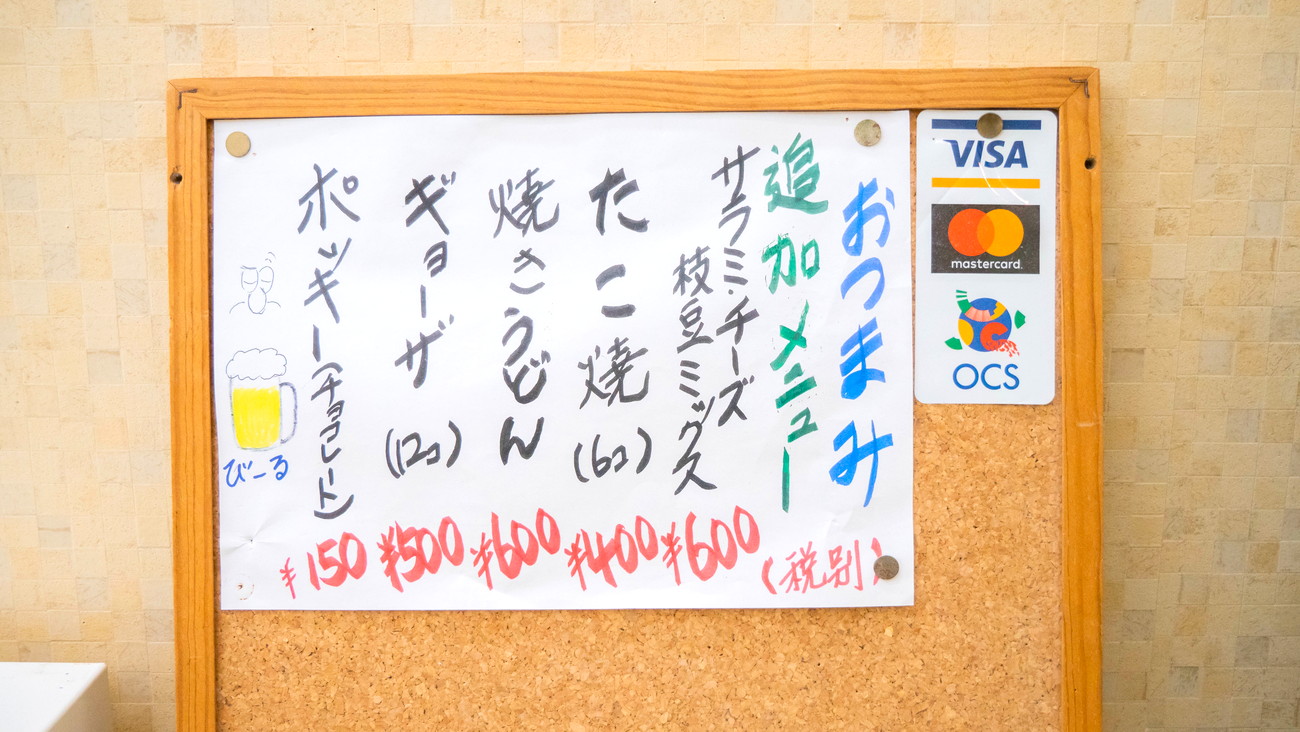 おつまみ
追加メニュー
(税別)
サラミ・チーズ
枝豆ミックス
¥600
たこ焼(6コ)
¥400
焼きうどん
¥600
ギョーザ(12コ)
¥500
ポッキー(チョコレート)
¥150
びーる
VISA
mastercard.
OCS